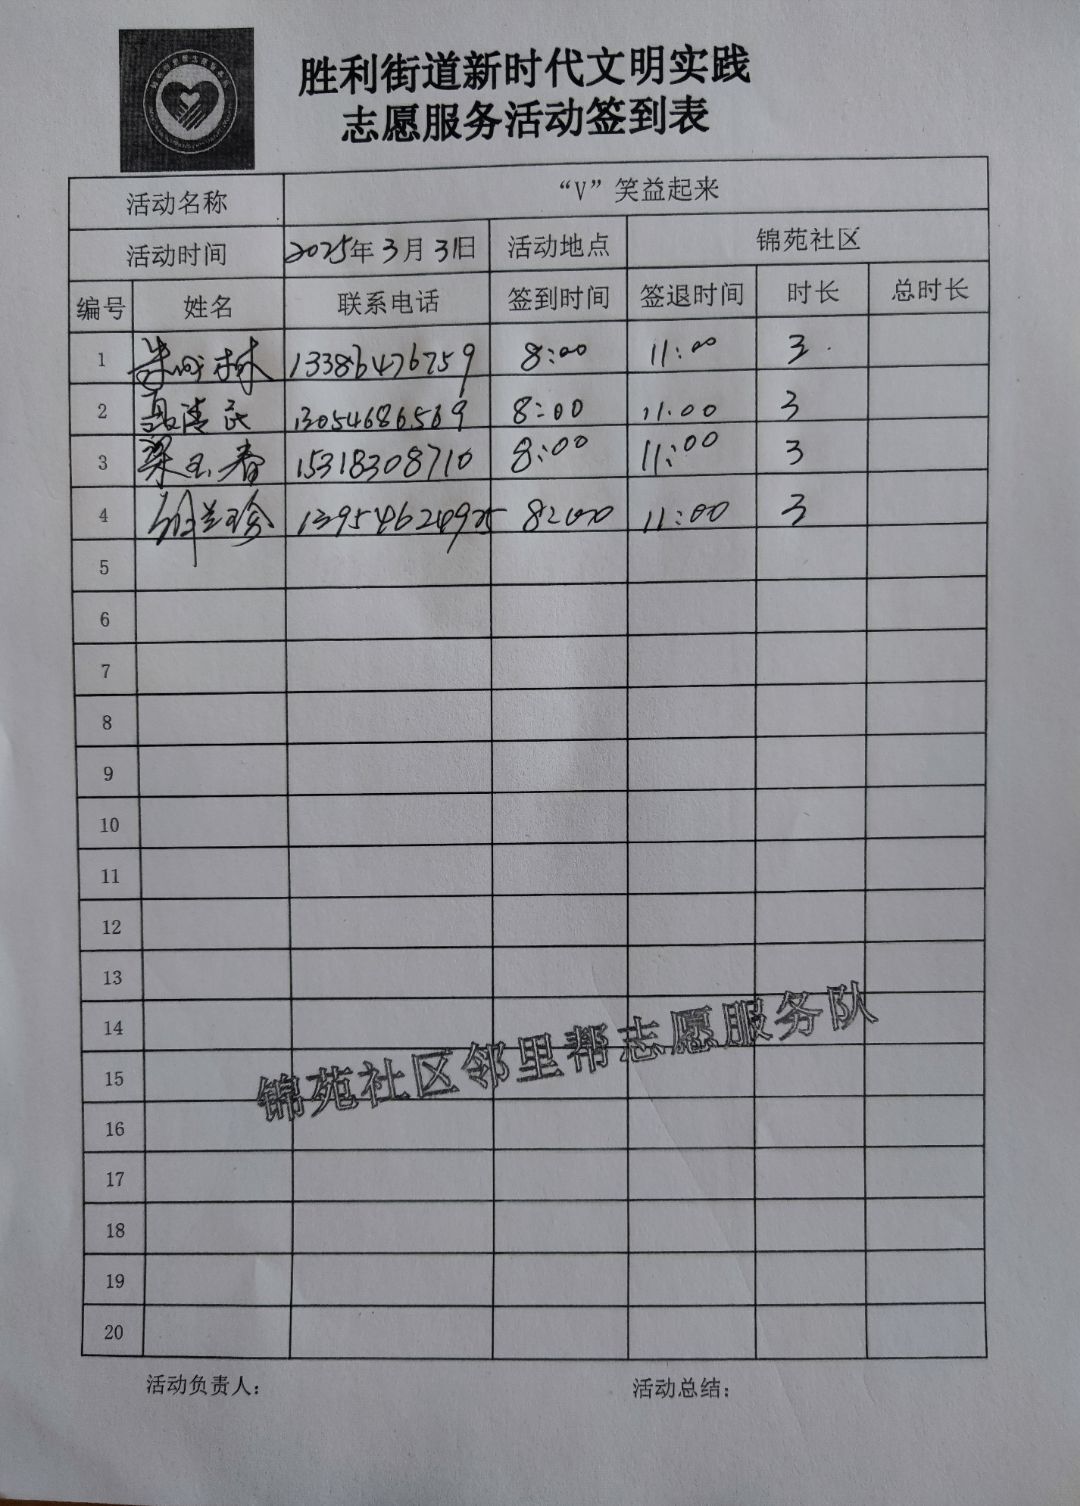 胜利街道新时代文明实践
志愿服务活动签到表
活动名称 “V”笑益起来
活动时间 2025年3月31日 活动地点 锦苑社区
编号 姓名 联系电话 签到时间 签退时间 时长 总时长
1 13386476759 8:00 11:00 3
2 清民 13054686569 8:00 11:00 3
3 梁玉春 15318308710 8:00 11:00 3
4 兰珍 8:00 11:00 3
5
6
7
8
9
10
11
12
13
14
15
16
17
18
19
20
锦苑社区邻里帮志愿服务队
活动负责人: 活动总结: